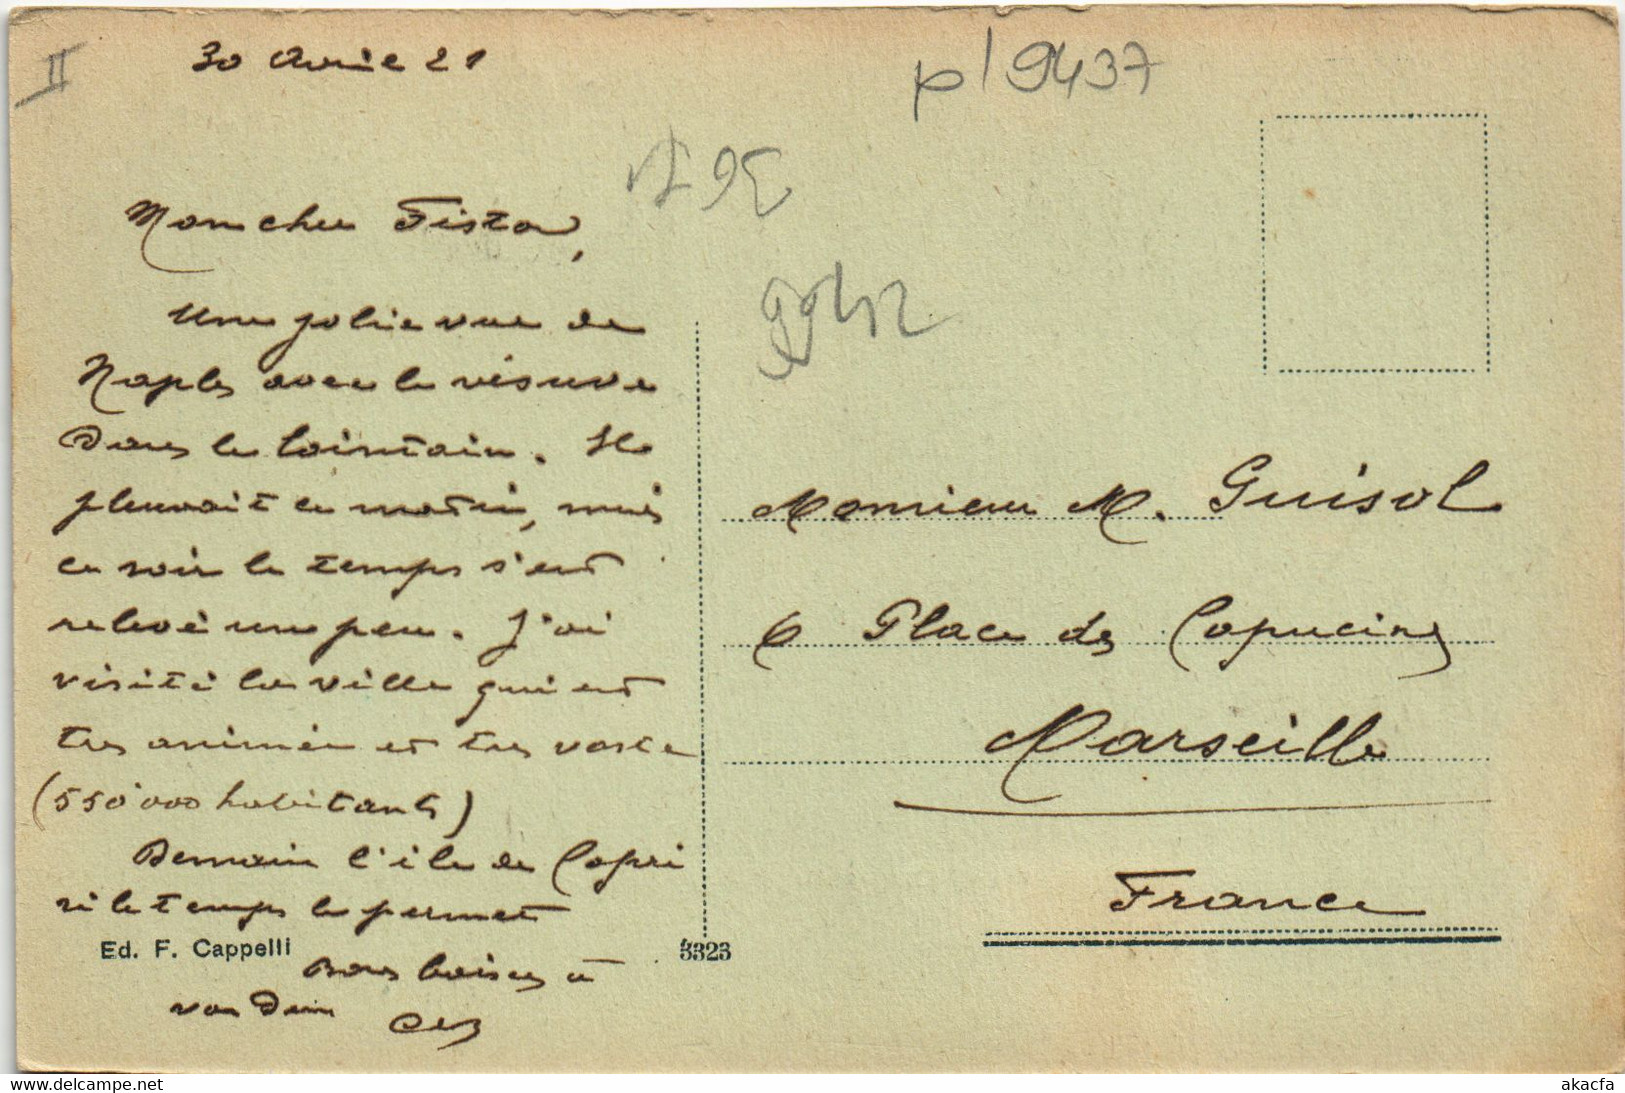 II
30 Avril 21
p/9437
Mon cher Fiston,
Une jolie vue de
Naples avec le vésuve
dans le lointain. Il
pleuvait ce matin, mais
ce soir le temps s'est
relevé un peu. J'ai
visité la ville qui est
très animée et très vaste
(550'000 habitants)
Demain l'île de Capri
si le temps le permet
Bons baisers à
Ed. F. Cappelli
3323
Monsieur M. Guisol
6 Place des Capucins
Marseille
France
www.delcampe.net
akacfa